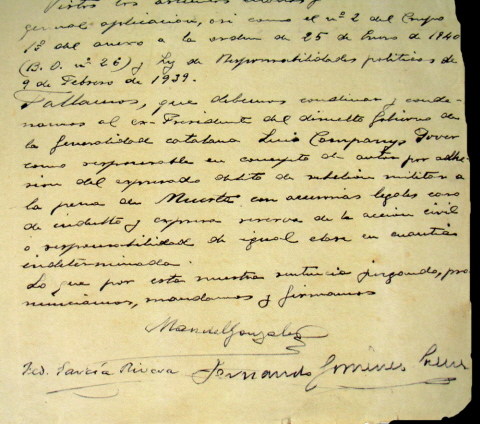 Vistos los artículos citados y
general aplicación, así como el nº 2 del Grupo
1º del anexo a la orden de 25 de Enero de 1940
(B.O. nº 26) y Ley de Responsabilidades políticas de
9 de Febrero de 1939.
Fallamos, que debemos condenar y conde-
namos al ex-Presidente del dimuelto Gobierno de
la Generalidad catalana Luis Companys Jover
como responsable en concepto de autor por adhe-
sion del expresado delito de rebelión militar a
la pena de Muerte con accesorias legales caso
de indulto y expresa reserva de la acción civil
o responsabilidad de igual clase en cuantía
indeterminada.
Lo que por esta nuestra sentencia juzgando, pro
nunciamos, mandamos y firmamos
Manuel Gonzalez
Fed. García Rivera Fernando Giménez